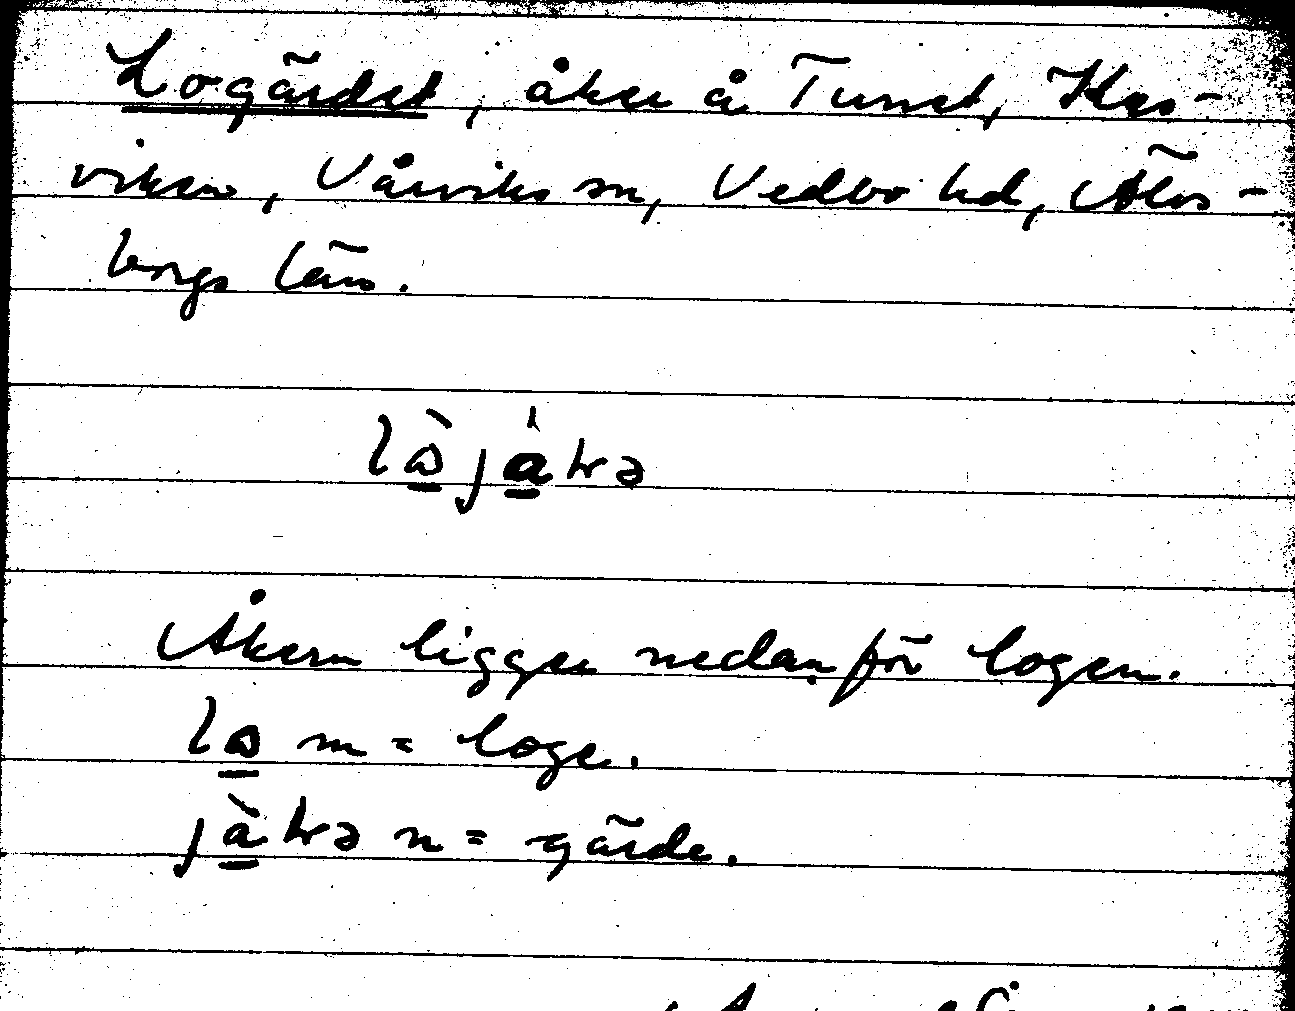 Logärdet, åker å Tunet, Klev-
viken, Vårviks sn, Vedbo hd, Älvs-
borgs län.
Åkern ligger nedanför logen.
m = loge.
n = gärde.